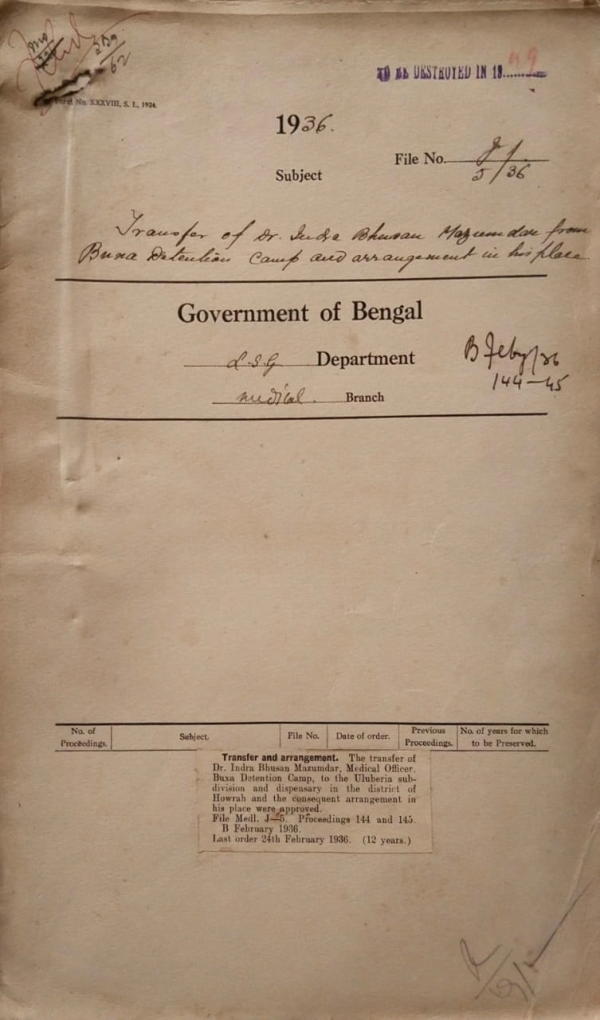 TO BE DESTROYED IN 19 49
Form No. XXXVIII, S. I., 1924.
1936.
File No. J/.
5/36
Subject
Transfer of Dr. Indra Bhusan Mazumdar from
Buxa Detention Camp and arrangement in his place
Government of Bengal
L S G Department
B Feby/36
144-45
Medical. Branch
No. of Proceedings. Subject. File No. Date of order. Previous Proceedings. No. of years for which to be Preserved.
Transfer and arrangement. The transfer of
Dr. Indra Bhusan Mazumdar, Medical Officer,
Buxa Detention Camp, to the Uluberia sub-
division and dispensary in the district of
Howrah and the consequent arrangement in
his place were approved.
File Medl. J—5. Proceedings 144 and 145.
B February 1936.
Last order 24th February 1936. (12 years.)